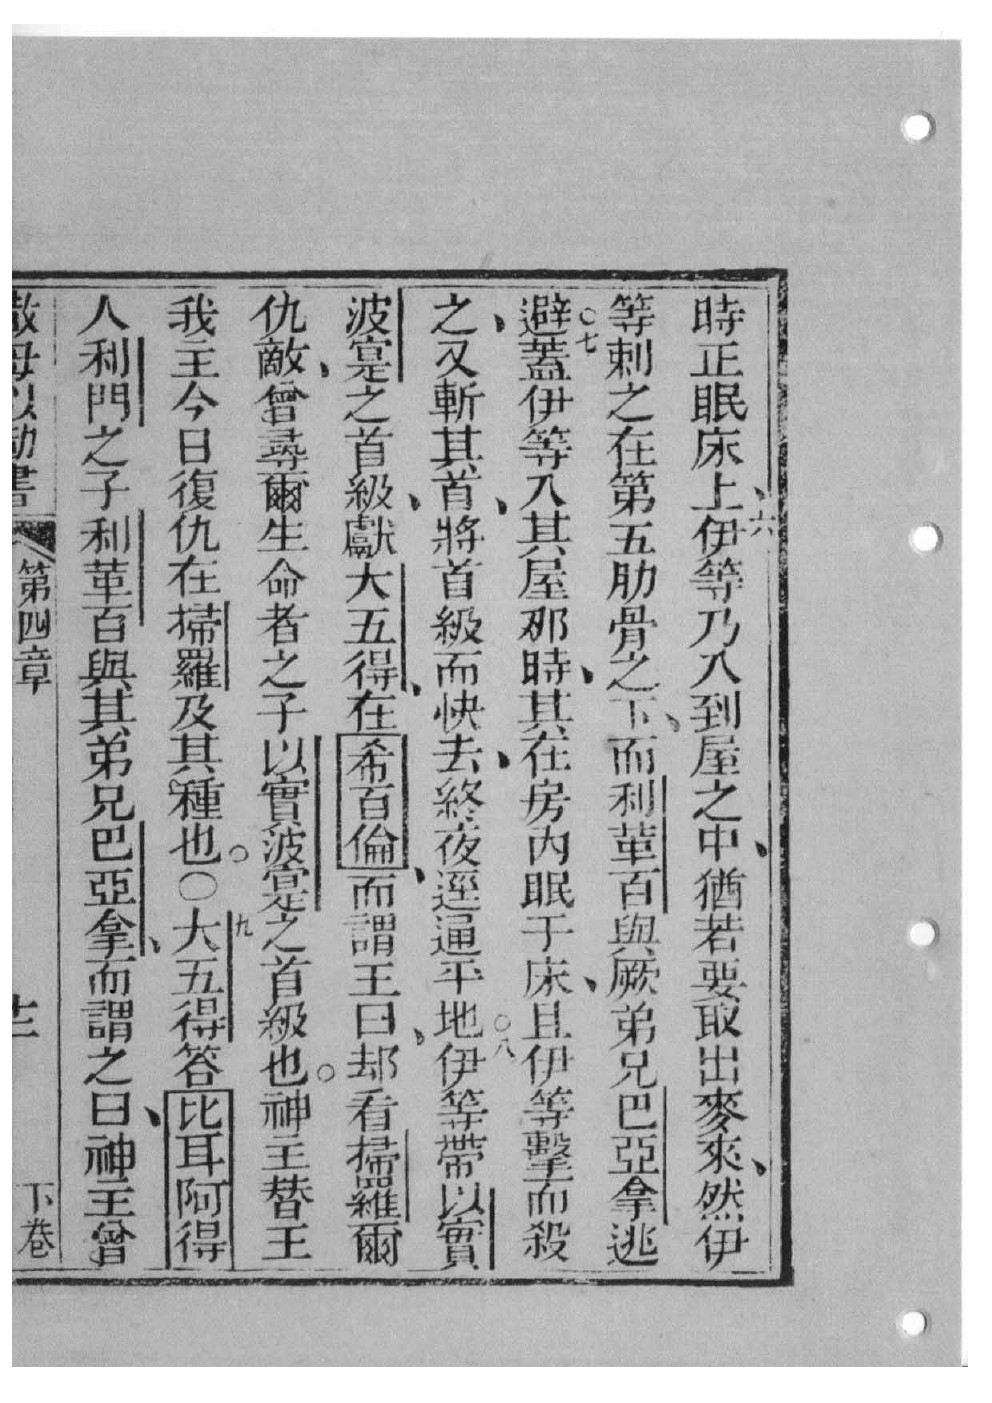 時正眠床上、六伊等乃入到屋之中、猶若要取出麥來、然伊
等刺之在第五肋骨之下、而利革百與厥弟兄巴亞拿逃
避○七蓋伊等入其屋那時、其在房內眠于床、且伊等擊而殺
之、又斬其首、將首級而快去、終夜逕通平地○八伊等帶以實
波寔之首級、獻大五得、在希百倫、而謂王曰、却看掃羅爾
仇敵、曾尋爾生命者之子以實波寔之首級也○神主替王
我主今日復仇在掃羅及其種也○○九大五得答比耳阿得
人利門之子利革百與其弟兄巴亞拿、而謂之曰、神主曾
撒母以勒書 第四章 十二 下卷